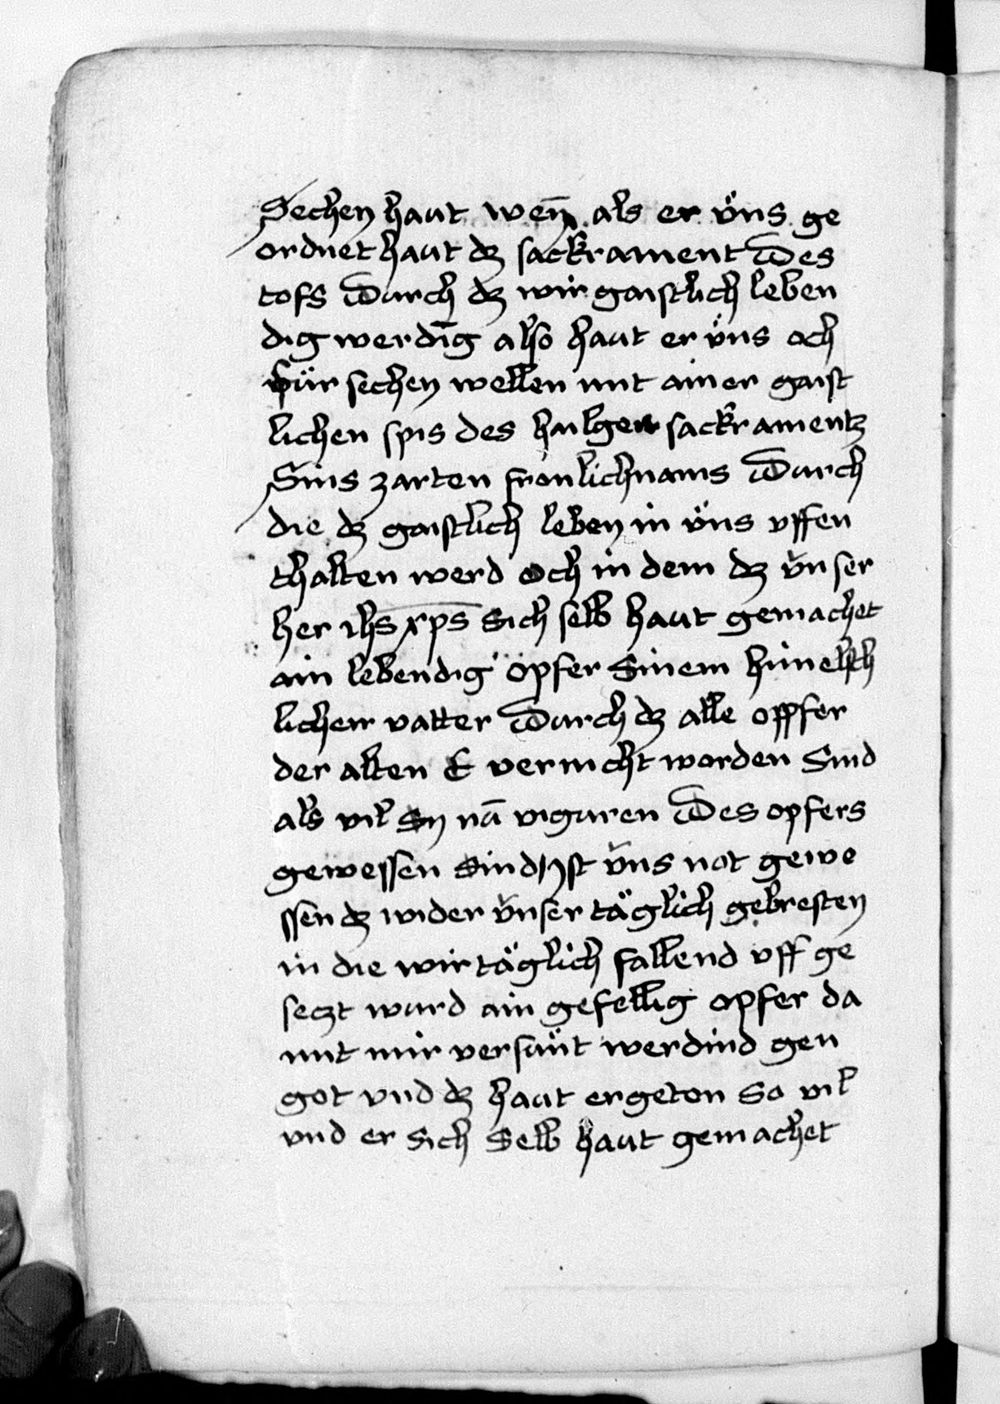 Sechen haut wen̄ als er v̈ns ge
ordnet haut dz sackrament Des
tofs Durch dz wir gaistlich leben
dig werdīg also haut er v̈ns och
für sechen wellen mit ainer gaist
lichen spis des hailgen sackramentz
Sins zarten fronlichnams Durch
die dz gaistlich leben in v̈ns vffen
thalten werd Och in dem dz v̈nser
her ihs xps Sich selb haut gemachet
ain lebendig opfer Sinem himelsch
lichen vatter Durch dz alle opffer
der alten E vernicht worden Sind
als vil Sy nā viguren Des opfers
gewessen Sind Ist v̈ns not gewe
ssen dz wider v̈nser täglich gebresten
in die wir täglich fallend vff ge
seczt ward ain gefellig opfer da
mit mir versünt werdind gen
got vnd dz haut er geton So vil
vnd er sich Selb haut gemachet